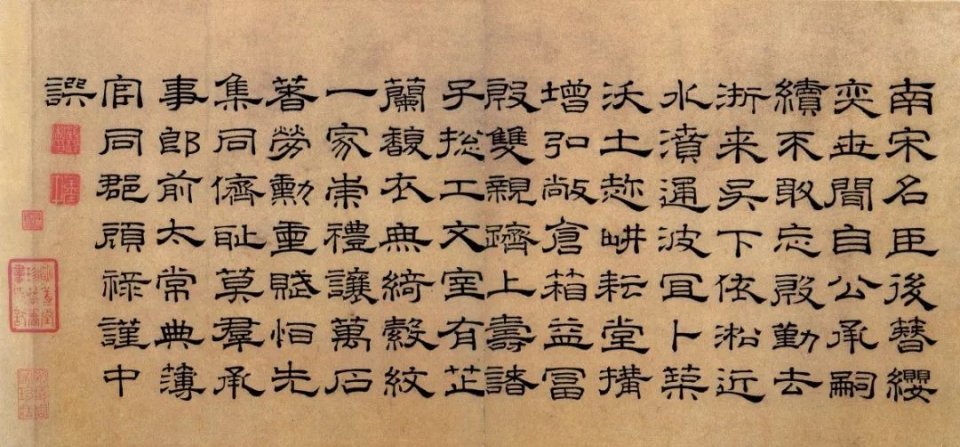 南宋名臣後簪纓
奕世聞自公承嗣
續不敢忘殷勤去
浙来吴下依淞近
水濆通波冝卜築
沃土趂畊耘堂搆
增弘敞倉箱益冨
殷雙親躋上壽諸
子捴工文室有芷
蘭馥衣無綺縠紋
一家崇禮讓萬石
著勞勳重賦怕先
集同儕耻莫羣承
事郎前太常典薄
官同郡頋祿謹中
譔